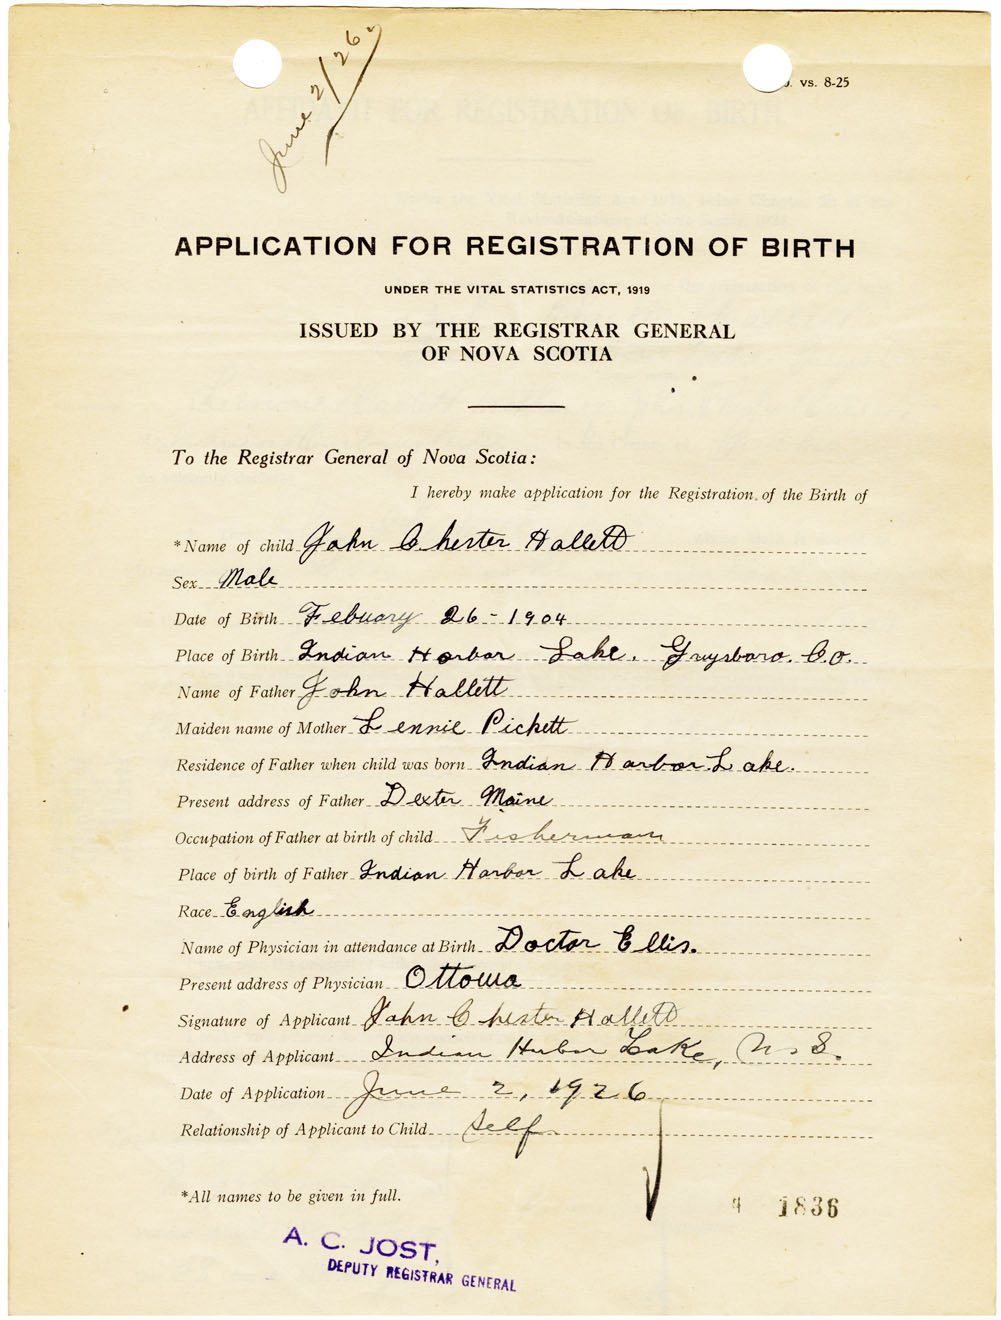 June 2/26
. vs. 8-25
APPLICATION FOR REGISTRATION OF BIRTH
UNDER THE VITAL STATISTICS ACT, 1919
ISSUED BY THE REGISTRAR GENERAL
OF NOVA SCOTIA
To the Registrar General of Nova Scotia:
I hereby make application for the Registration of the Birth of
*Name of child John Chester Hallett
Sex Male
Date of Birth Febuary 26-1904
Place of Birth Indian Harbor Lake. Guysboro. Co.
Name of Father John Hallett
Maiden name of Mother Lennie Pickett
Residence of Father when child was born Indian Harbor Lake.
Present address of Father Dexter Maine
Occupation of Father at birth of child Fisherman
Place of birth of Father Indian Harbor Lake
Race English
Name of Physician in attendance at Birth Doctor Ellis.
Present address of Physician Ottowa
Signature of Applicant John Chester Hallett
Address of Applicant Indian Harbor Lake, N.S.
Date of Application June 2, 1926
Relationship of Applicant to Child Self
*All names to be given in full.
1836
A. C. JOST,
DEPUTY REGISTRAR GENERAL